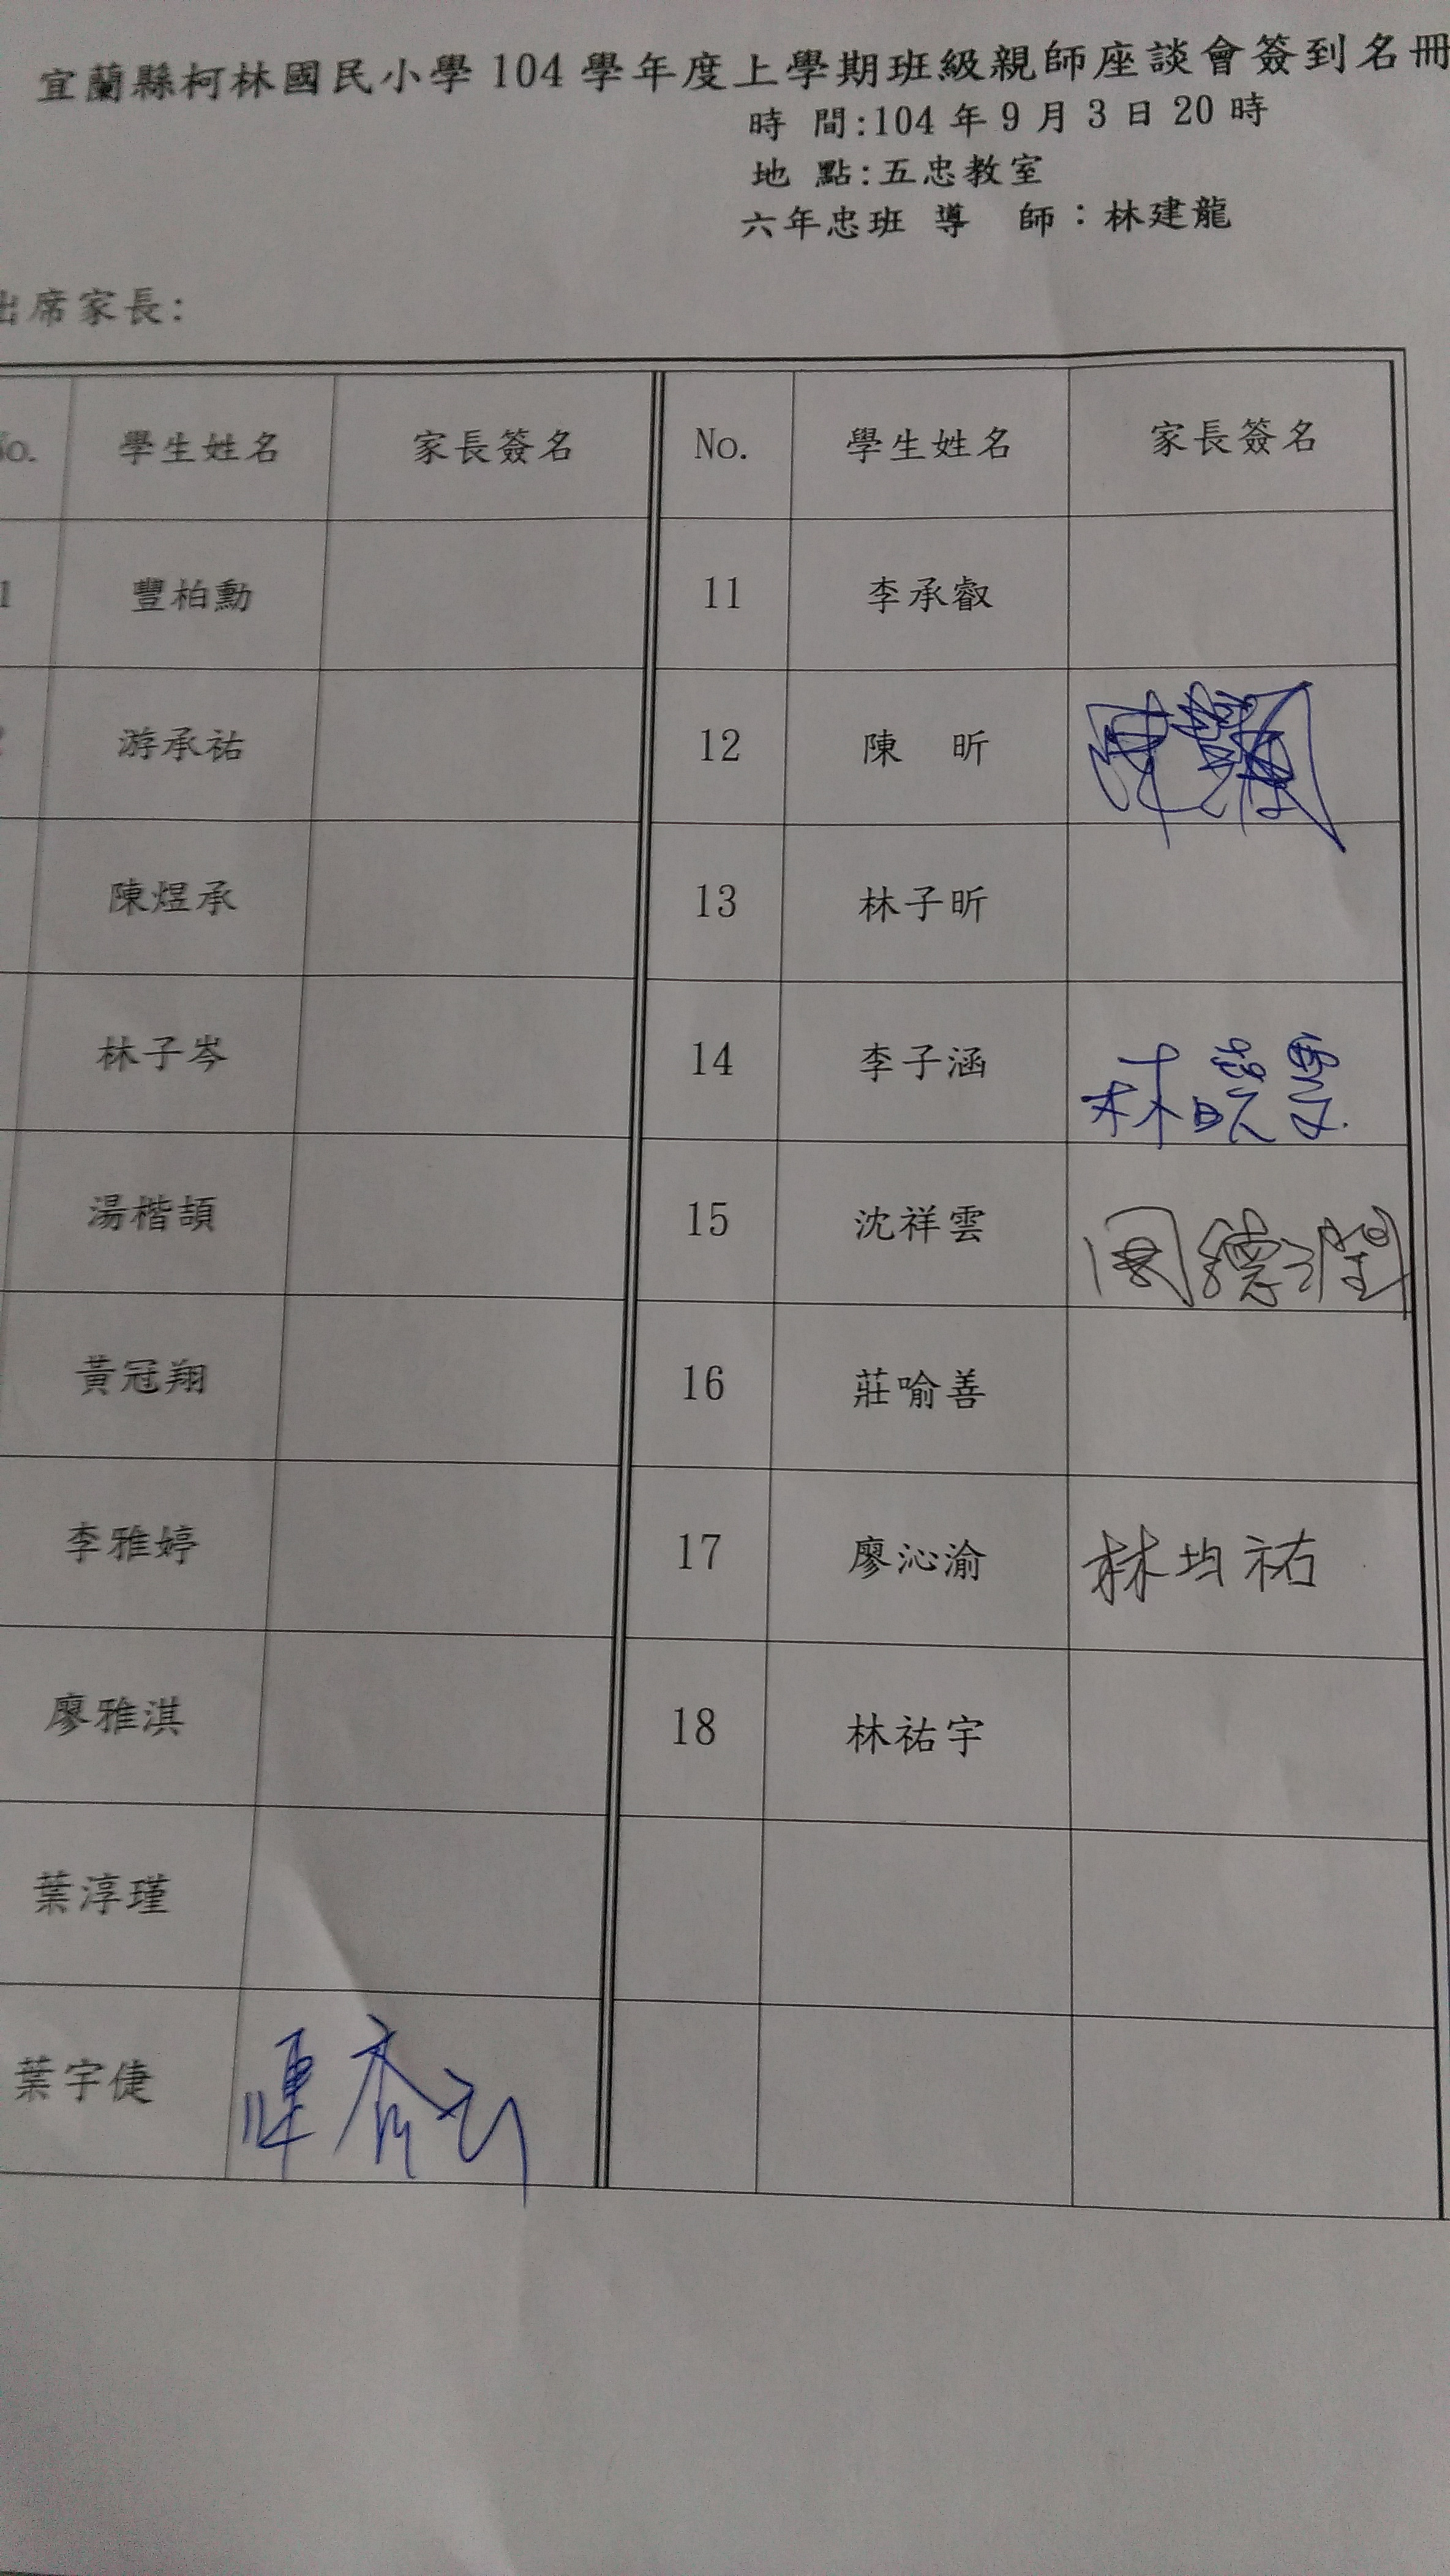 宜蘭縣柯林國民小學 104 學年度上學期班級親師座談會簽到名冊
時 間:104 年 9 月 3 日 20 時
地 點:五忠教室
六年忠班 導 師：林建龍
出席家長:
No. 學生姓名 家長簽名 No. 學生姓名 家長簽名
1 豐柏勳 11 李承叡
2 游承祐 12 陳 昕 陳
陳煜承 13 林子昕
林子岑 14 李子涵 林曉雯
湯楷頡 15 沈祥雲 周德潤
黃冠翔 16 莊喻善
李雅婷 17 廖沁渝 林均祐
廖雅淇 18 林祐宇
葉淳瑾
葉宇倢 陳喬云